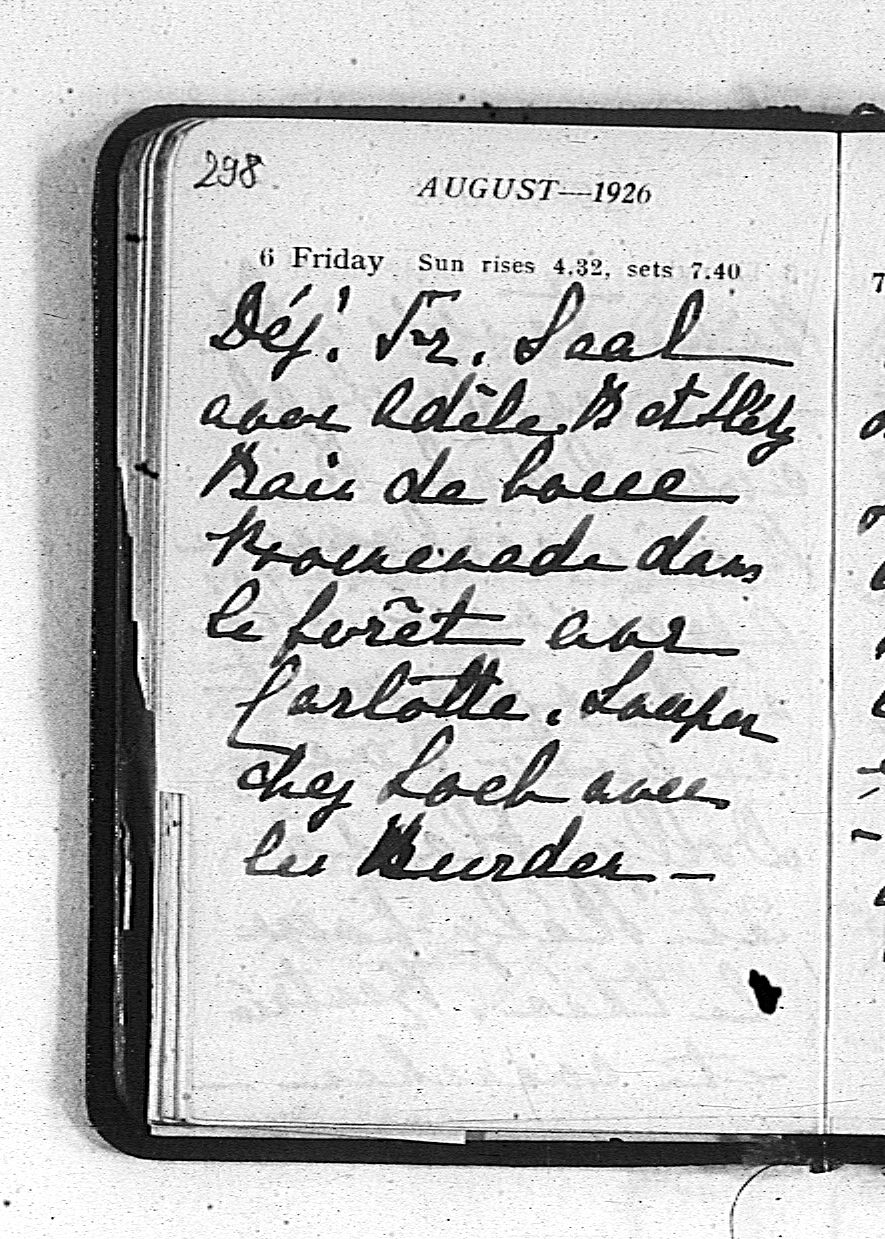 298
AUGUST—1926
6 Friday Sun rises 4.32, sets 7.40
Déj! Fr. Saal
avec Adèle B et
Bain de boue
Promenade dans
le forêt avec
Carlotte. Souper
chez Loeb avec
les Burder —
7